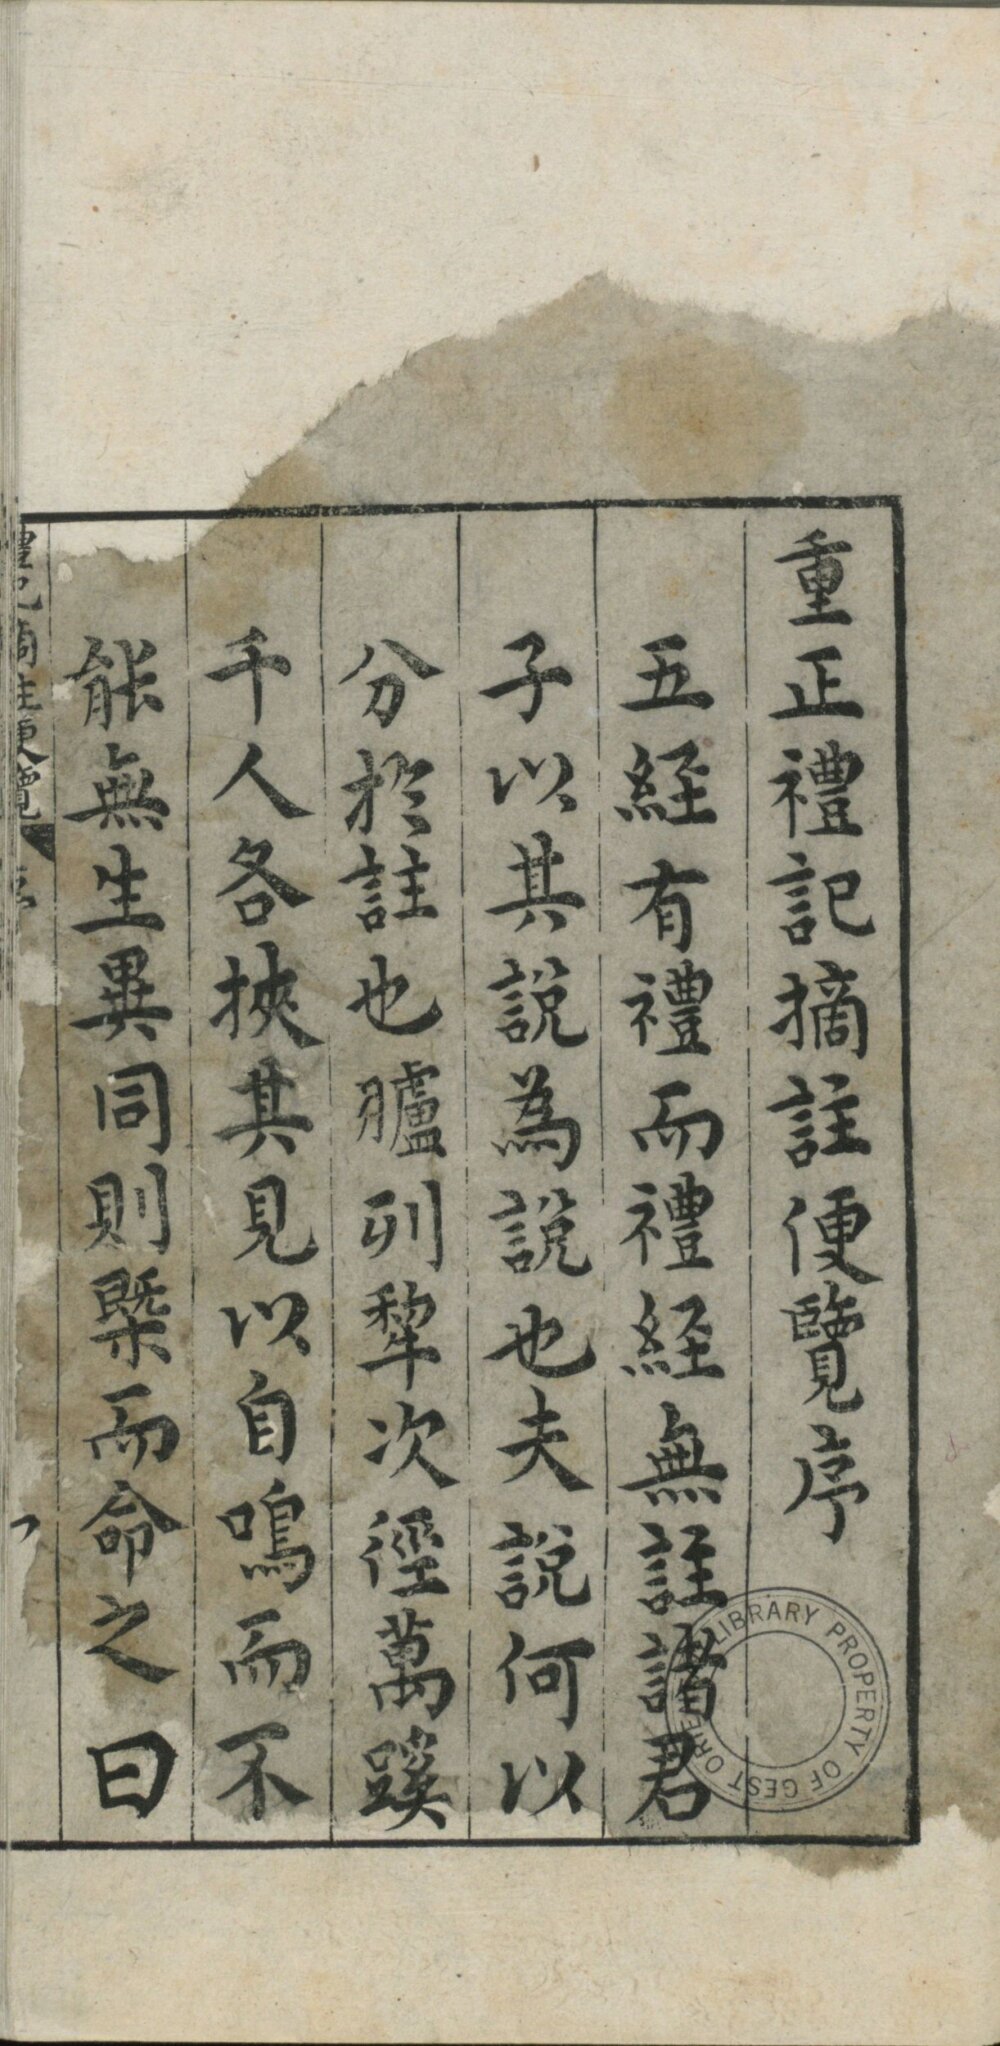 重正禮記摘註便覽序
五経有禮而禮経無註諸君
子以其説為説也夫説何以
分於註也臚列犂次徑萬蹊
千人各挾其見以自鳴而不
能無生異同則槩而命之曰
禮記摘註便覽
序
LIBRARY PROPERTY OF GEST